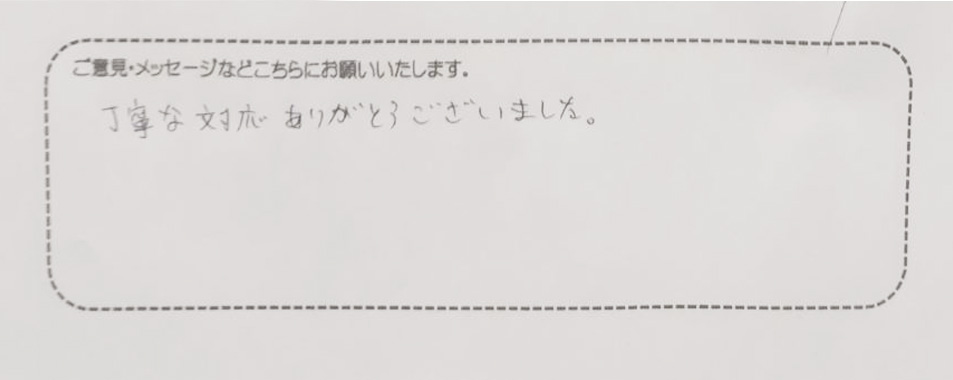 ご意見・メッセージなどこちらにお願いいたします。
丁寧な対応ありがとうございました。